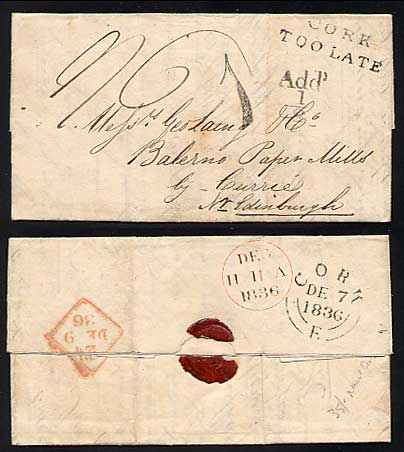 CORK
TOO LATE
Addl
1
Messrs Geo Laing & Co
Balerno Paper Mills
by Currie
Nr Edinburgh
DE
11 11 A
1836
CORK
DE 7
1836
E
DE 9
36